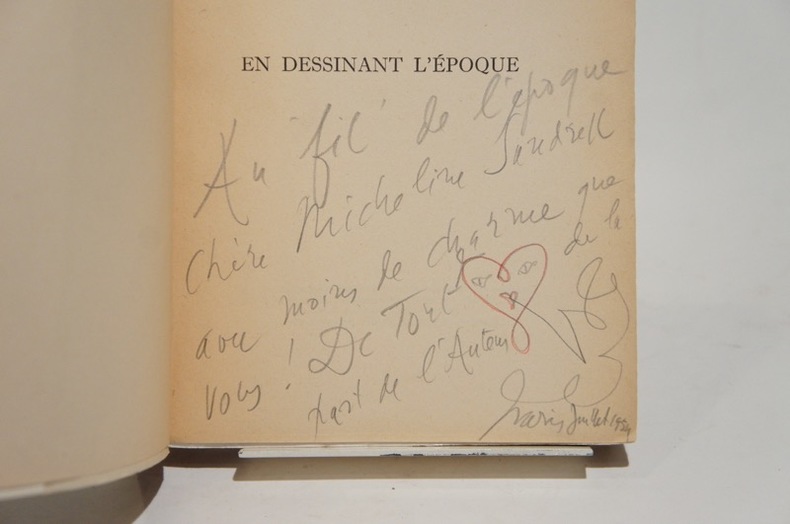 EN DESSINANT L'ÉPOQUE
Au "fil" de l'époque
Chère Micheline Sandrell
avec moins de charme que
vous ! De Tout de la
part de l'Auteur
Paris Juillet 1954